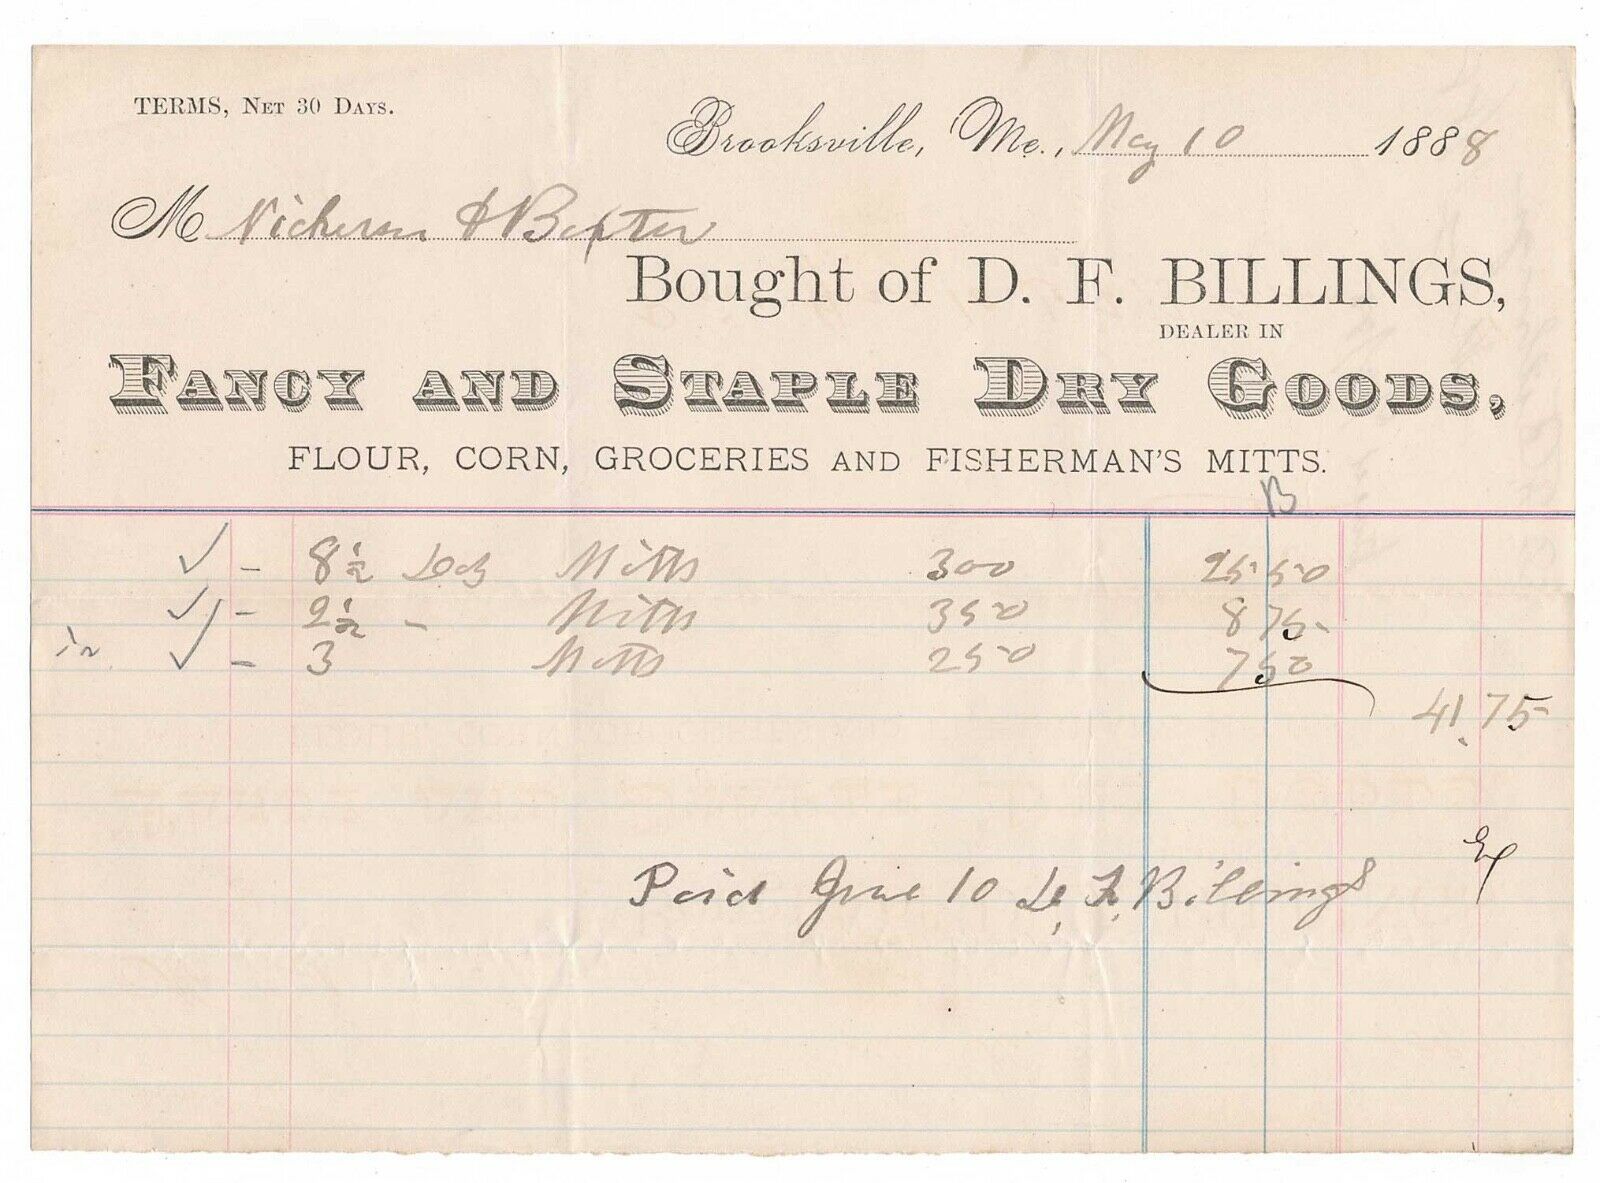 TERMS, NET 30 DAYS.
Brooksville, Me., May 10 1888
M Nickerson & Baxter
Bought of D. F. BILLINGS,
DEALER IN
FANCY AND STAPLE DRY GOODS,
FLOUR, CORN, GROCERIES AND FISHERMAN'S MITTS.
B
✓ – 8 1/2 Doz Mitts 300 25 50
✓ – 2 1/2 – Mitts 350 8 75
✓ – 3 Mitts 250 7 50
41.75
Paid June 10 D. F. Billings